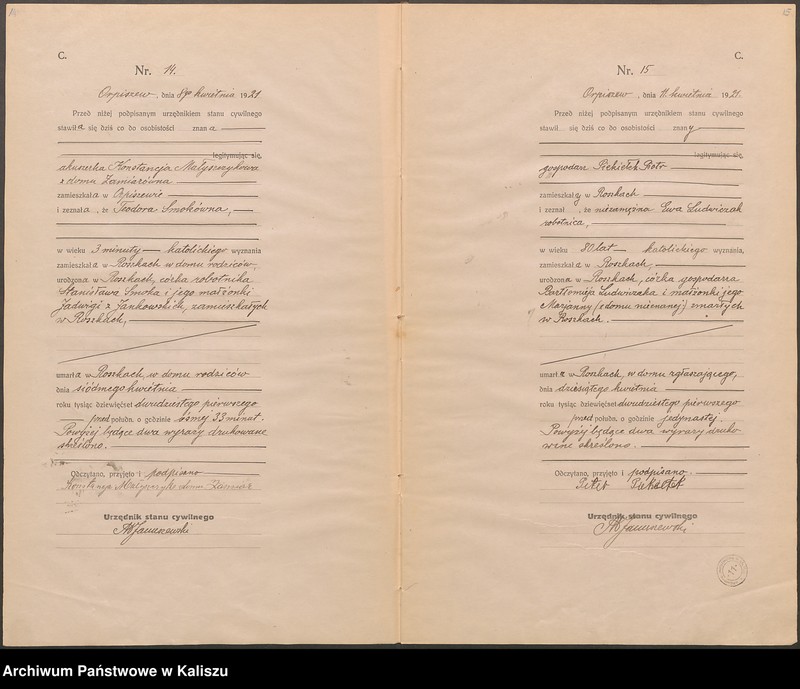 C.
Nr. 14.
Orpiszew, dnia 8go kwietnia 1921
Przed niżej podpisanym urzędnikiem stanu cywilnego
stawiła się dziś co do osobistości znana
legitymując się,
akuszerka Konstancja Małyszczykowa
z domu Zamiarówna
zamieszkała w Orpiszewie
i zeznała, że Teodora Smokówna,
w wieku 3 minuty katolickiego wyznania
zamieszkała w Roszkach w domu rodziców,
urodzona w Roszkach, córka robotnika
Stanisława Smoka i jego małżonki
Jadwigi z Jankowskich, zamieszkałych
w Roszkach,
umarła w Roszkach, w domu rodziców
dnia siódmego kwietnia
roku tysiąc dziewięćset dwudziestego pierwszego
przed połudn. o godzinie ósmej 33 minut.
Powyżej będące dwa wyrazy drukowane
skreślono.
Odczytano, przyjęto i podpisano
Konstancja Małyszczyk domu Zamiar
Urzędnik stanu cywilnego
15
C.
Nr. 15
Orpiszew, dnia 11. kwietnia 1921.
Przed niżej podpisanym urzędnikiem stanu cywilnego
stawił się dziś co do osobistości znany
legitymując się,
gospodarz Piekiełek Piotr
zamieszkały w Roszkach
i zeznał, że niezamężna Ewa Ludwiczak
robotnica,
w wieku 80 lat katolickiego wyznania,
zamieszkała w Roszkach,
urodzona w Roszkach, córka gospodarza
Bartłomieja Ludwiczaka i małżonki jego
Marjanny (z domu nieznanej) zmarłych
w Roszkach.
umarła w Roszkach, w domu zgłaszającego,
dnia dziesiątego kwietnia
roku tysiąc dziewięćset dwudziestego pierwszego
przed połudn. o godzinie jedynastej.
Powyżej będące dwa wyrazy druko
wane skreślono.
Odczytano, przyjęto i podpisano.
Urzędnik stanu cywilnego
Archiwum Państwowe w Kaliszu